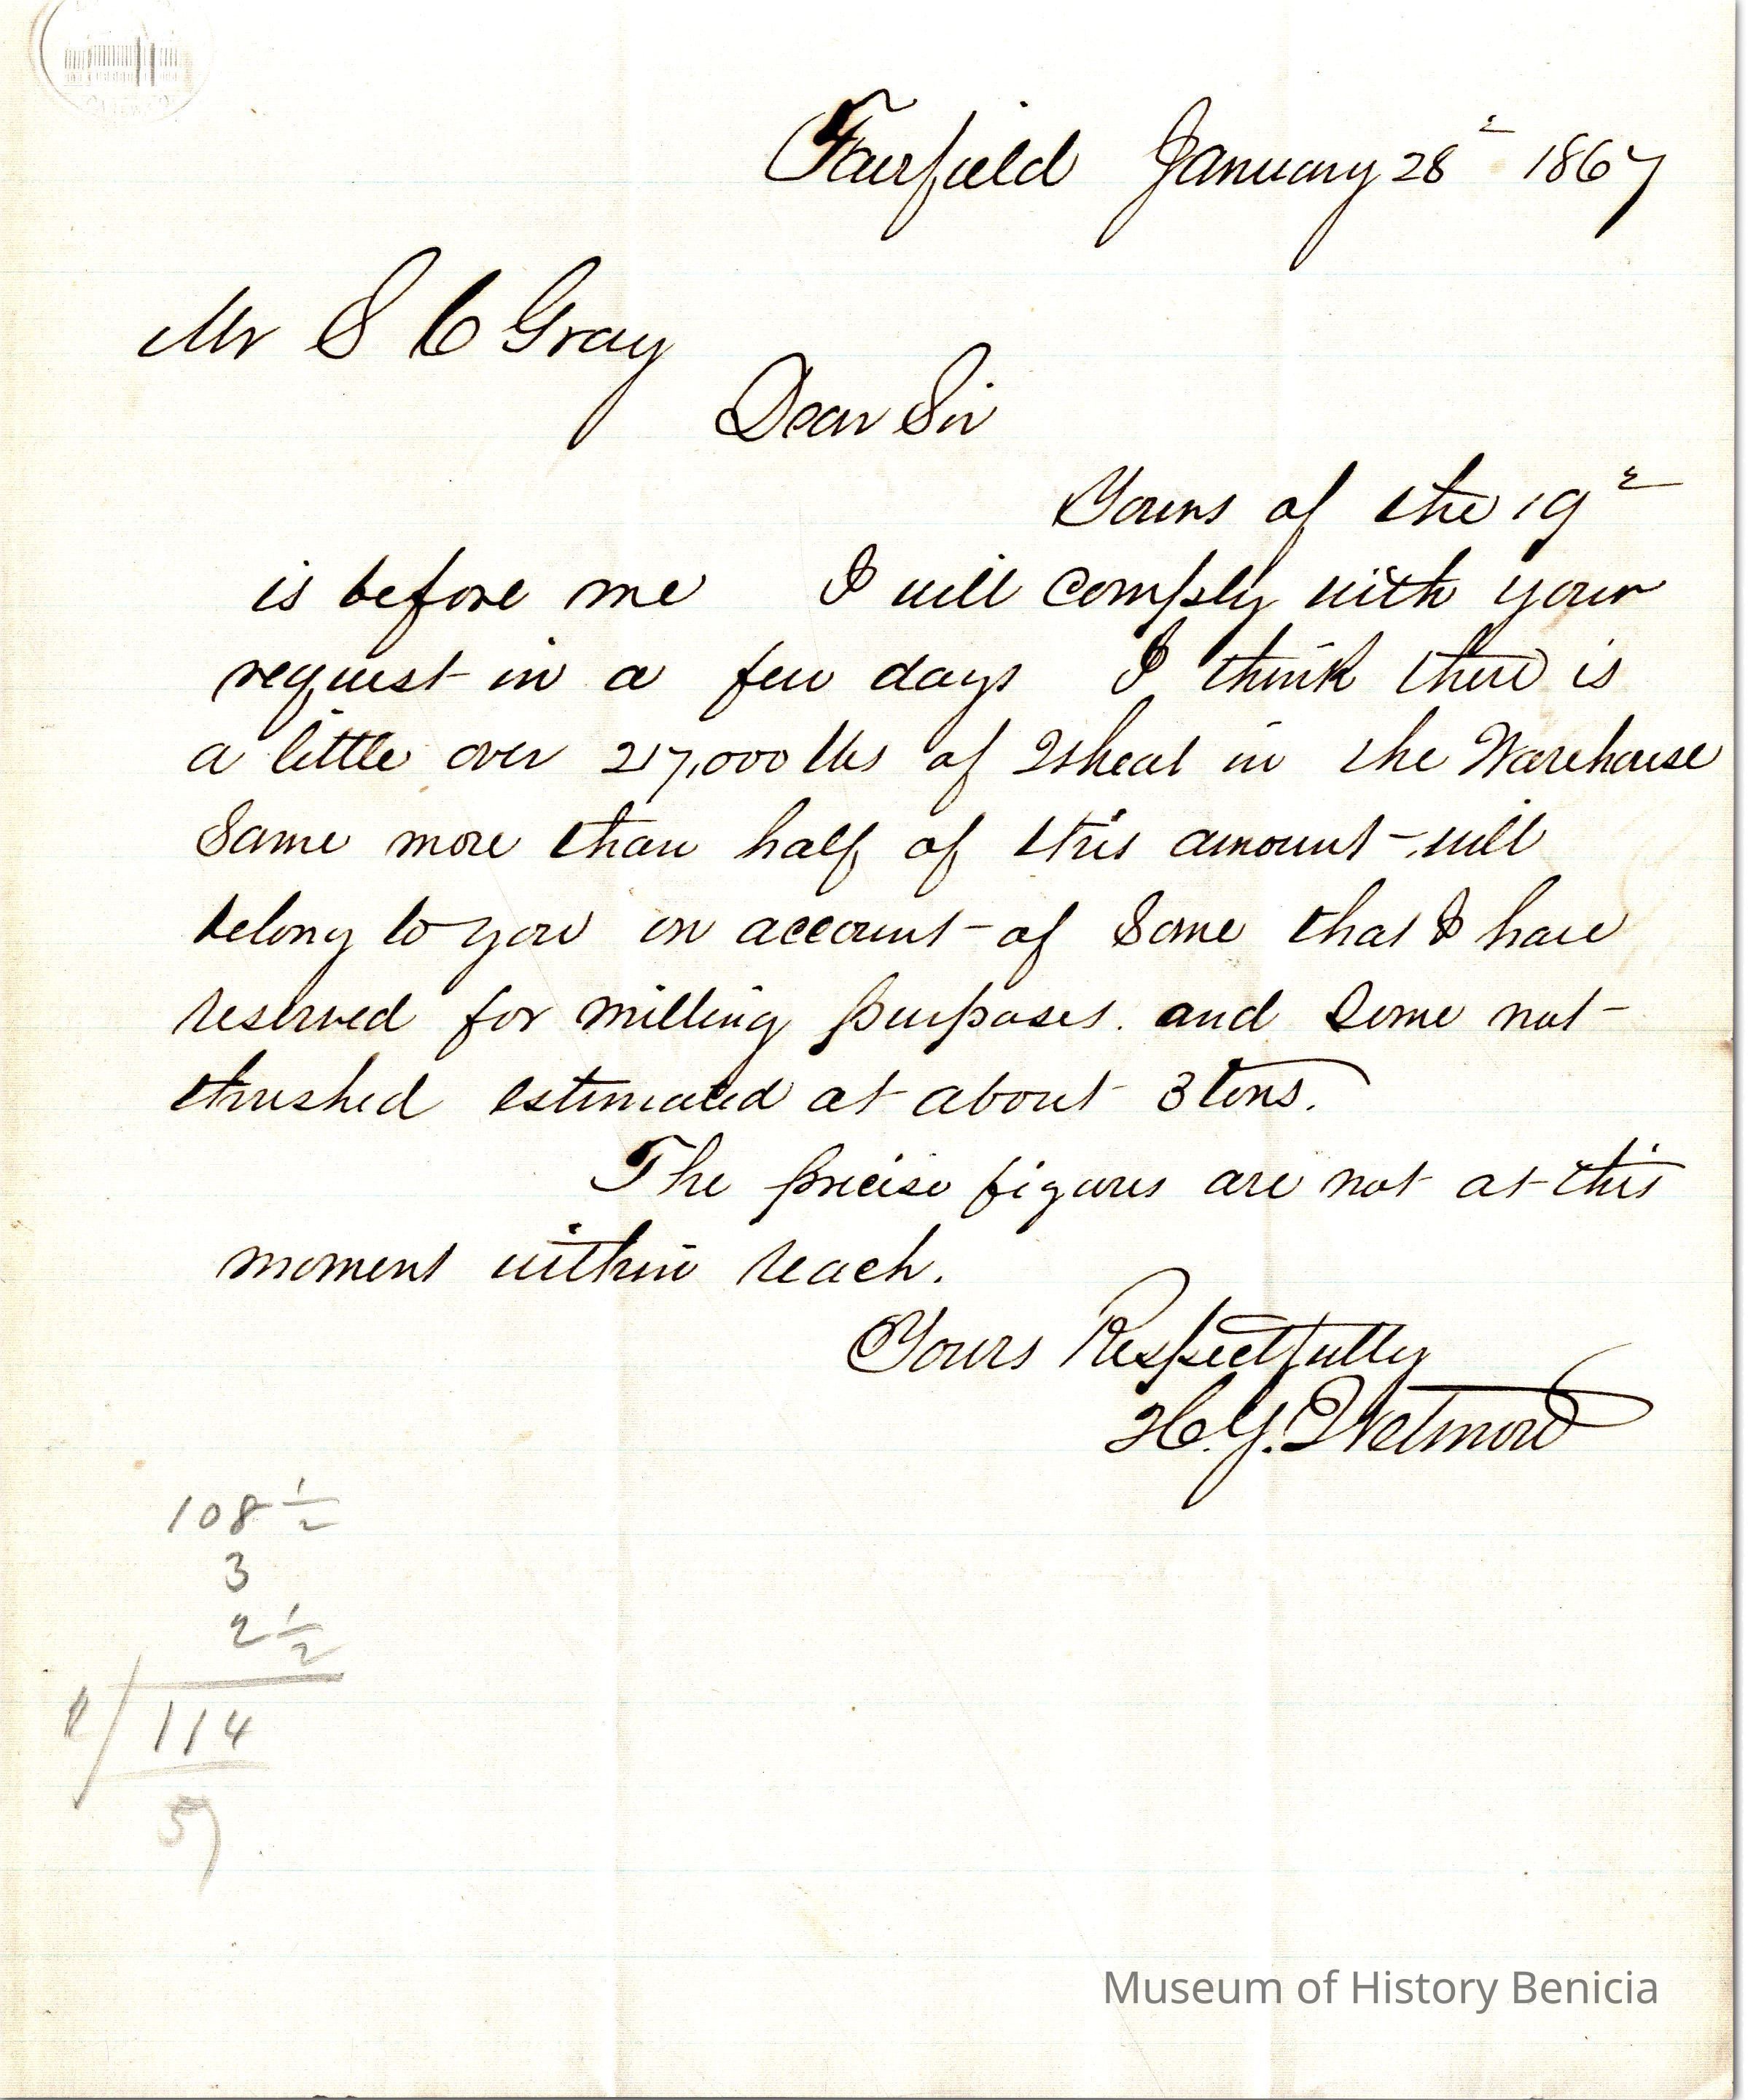 Fairfield January 28th 1867
Mr S C Gray
Dear Sir
Yours of the 19th
is before me I will comply with your
request in a few days I think there is
a little over 217,000 lbs of Wheat in the Warehouse
Some more than half of this amount will
belong to you on account of Some that I have
reserved for milling purposes. and Some not
thrushed estimated at about 3 tons.
The precise figures are not at this
moment within reach.
Yours Respectfully
H. Y. Wetmore
108 1/2
3
2 1/2
2/114
57
Museum of History Benicia